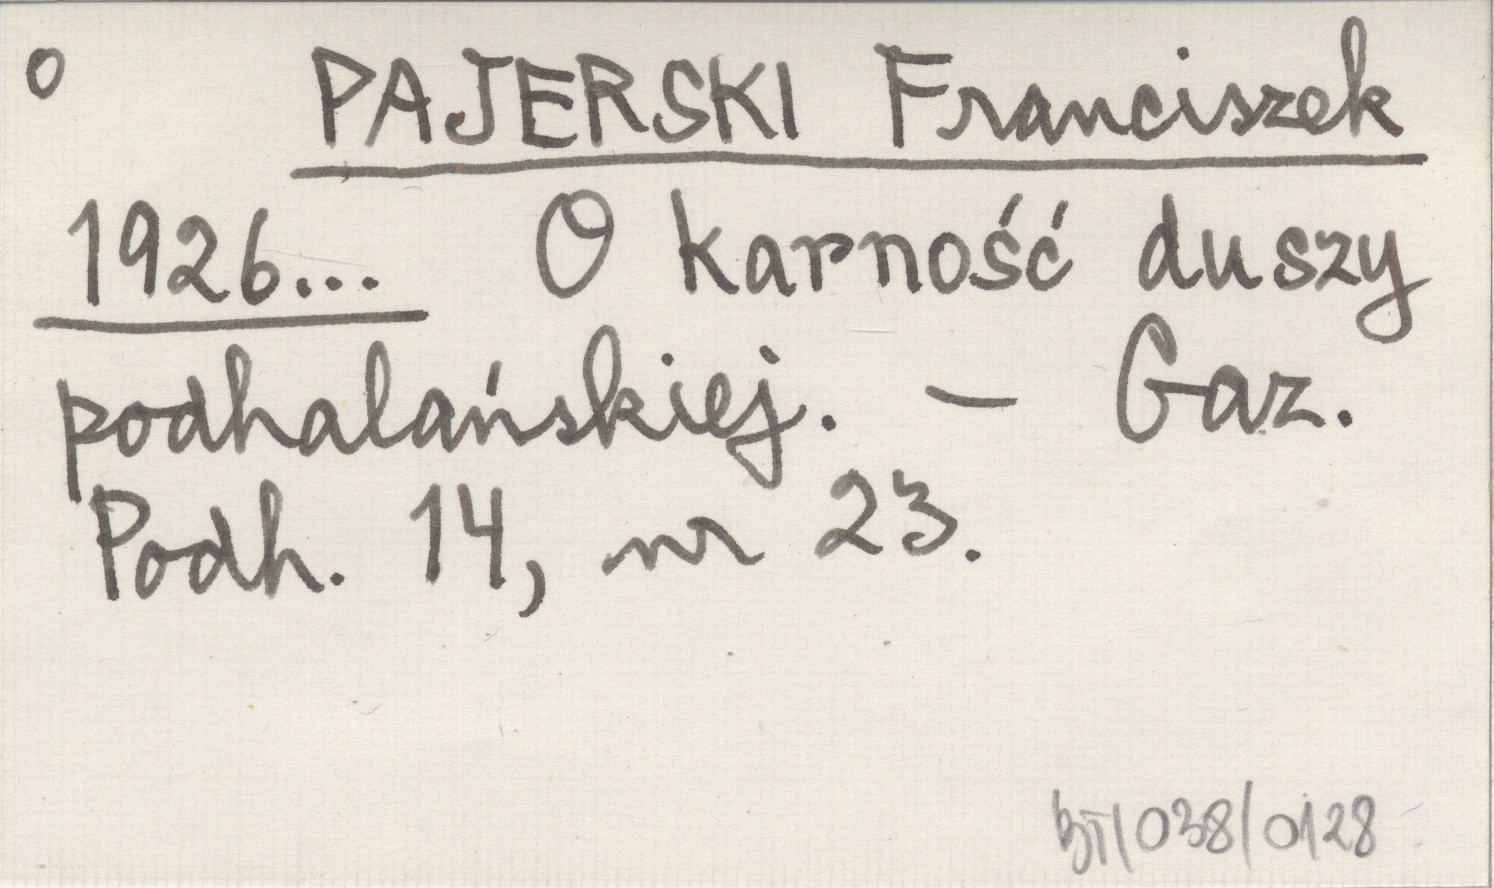 o PAJERSKI Franciszek
1926... O karność duszy
podhalańskiej. – Gaz.
Podh. 14, nr 23.
BT/038/0128